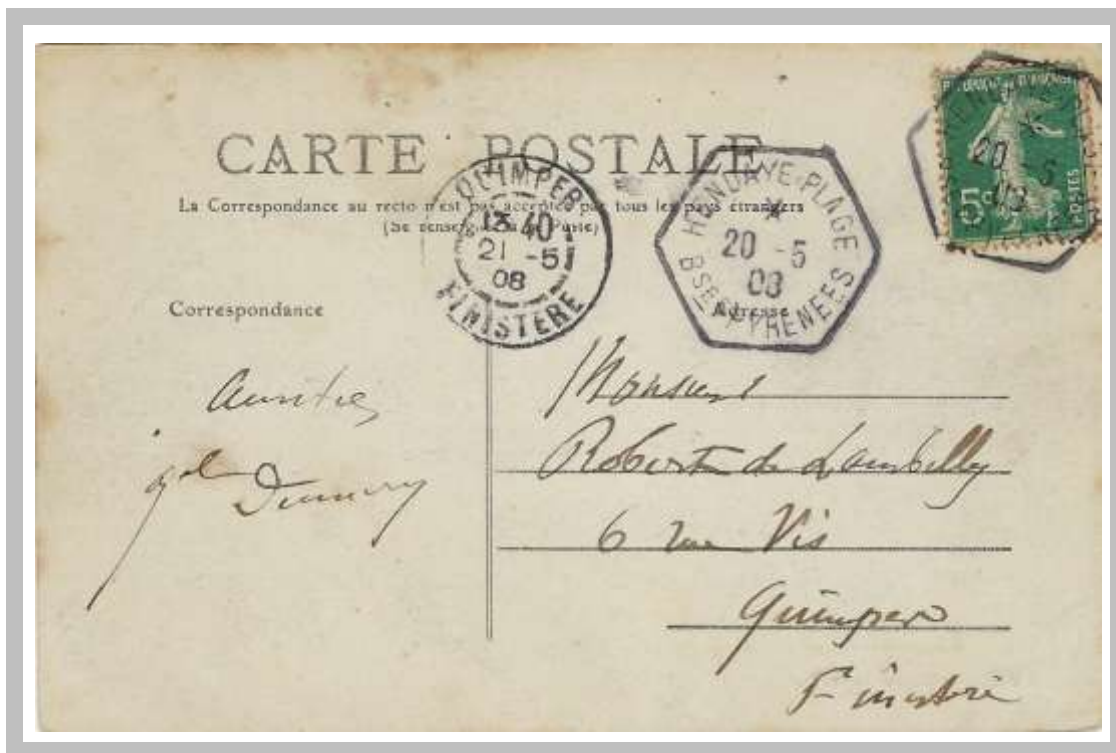 CARTE POSTALE
La Correspondance au recto n'est pas acceptée par tous les pays étrangers
(Se renseigner à la Poste)
QUIMPER
13 40
21 -5
08
FINISTERE
HENDAYE-PLAGE
20 -5
08
BSES PYRENEES
20 -5
5c
POSTES
Correspondance
Adresse
Amitiés
Monsieur
Robert de Lambilly
6 rue Vis
Quimper
Finistère